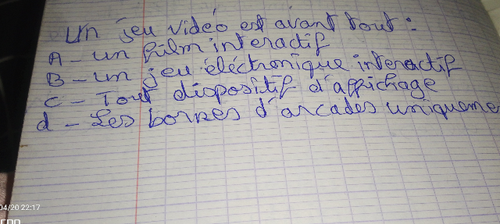 Un jeu vidéo est avant tout :
A - un film interactif
B - un jeu éléctronique interactif
C - Tout dispositif d'affichage
d - Les bornes d'arcades uniqueme
04/20 22:17